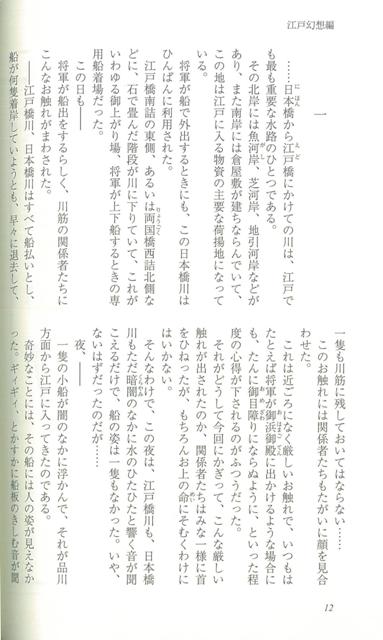 江戸幻想編
一
……日本橋から江戸橋にかけての川は、江戸で
も最も重要な水路のひとつである。
その北岸には魚河岸、芝河岸、地引河岸などが
あり、また南岸には倉屋敷が建ちならんでいて、
この地は江戸に入る物資の主要な荷揚地になって
いる。
将軍が船で外出するときにも、この日本橋川は
ひんぱんに利用された。
江戸橋南詰の東側、あるいは両国橋西詰北側な
どに、石で畳んだ階段が川に下りていて、これが
いわゆる御上がり場、将軍が上下船するときの専
用船着場だった。
この日も――
将軍が船出をするらしく、川筋の関係者たちに
こんなお触れがまわされた。
――江戸橋川、日本橋川はすべて船払いとし、
船が何隻着岸していようとも、早々に退去して、
一隻も川筋に残しておいてはならない……
このお触れには関係者たちもたがいに顔を見合
わせた。
これは近ごろになく厳しいお触れで、いつもは
たとえば将軍が御浜御殿に出かけるような場合に
も、たんに御目障りにならぬように、といった程
度の心得が下されるのがふつうだった。
それがどうして今回にかぎって、こんな厳しい
触れが出されたのか、関係者たちはみな一様に首
をひねったが、もちろんお上の命にそむくわけに
はいかない。
そんなわけで、この夜は、江戸橋川も、日本橋
川もただ暗闇のなかに水のひたひたと響く音が聞
こえるだけで、船の姿は一隻もなかった。いや、
ないはずだったのだが……
夜、――
一隻の小船が闇のなかに浮かんで、それが品川
方面から江戸に入ってきたのである。
奇妙なことには、その船には人の姿が見えなか
った。ギィギィ、とかすかに船板のきしむ音が聞
12